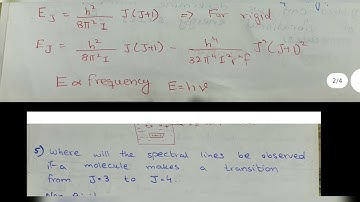 E_J = h²/8π²I J(J+1) ⇒ For rigid
E_J = h²/8π²I J(J+1) - h⁴/32π⁴I²r²f J²(J+1)²
E ∝ frequency E=hν
2/4
5) where will the spectral lines be observed
if a molecule makes a transition
from J=3 to J=4.